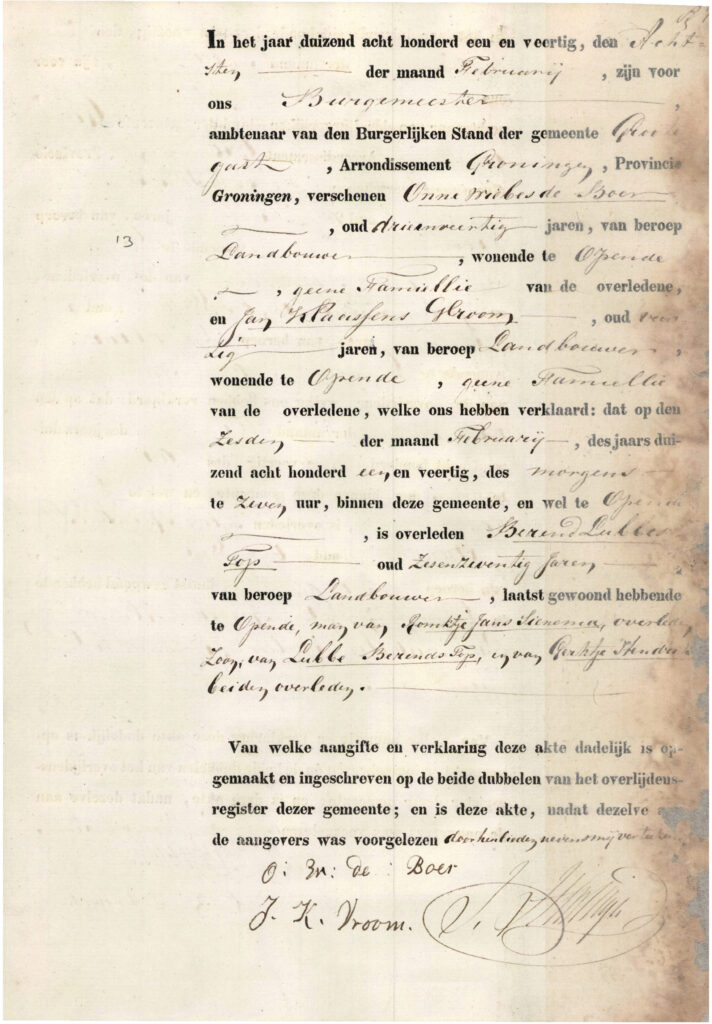 In het jaar duizend acht honderd een en veertig, den Acht-
sten der maand Februarij, zijn voor
ons Burgemeester,
ambtenaar van den Burgerlijken Stand der gemeente Groote
gast, Arrondissement Groningen, Provincie
Groningen, verschenen Onne Wiebes de Boer
, oud drieenveertig jaren, van beroep
Landbouwer, wonende te Opende
, geene Famiellie van de overledene,
en Jan Klaassens Vroom, oud veer
tig jaren, van beroep Landbouwer,
wonende te Opende, geene Famiellie
van de overledene, welke ons hebben verklaard: dat op den
Zesden der maand Februarij, des jaars dui-
zend acht honderd een en veertig, des morgens
te Zeven uur, binnen deze gemeente, en wel te Opende
, is overleden Berend Lubbes
Top oud Zesenzeventig Jaren
van beroep Landbouwer, laatst gewoond hebbende
te Opende, man van Romktje Jans Sienema, overleden
Zoon van Lubbe Berends Top, en van Gertje
beiden overleden.
Van welke aangifte en verklaring deze akte dadelijk is op-
gemaakt en ingeschreven op de beide dubbelen van het overlijdens-
register dezer gemeente; en is deze akte, nadat dezelve aan
de aangevers was voorgelezen door henlieden nevens mij verteekend
O: W: de Boer
J. K. Vroom.
13